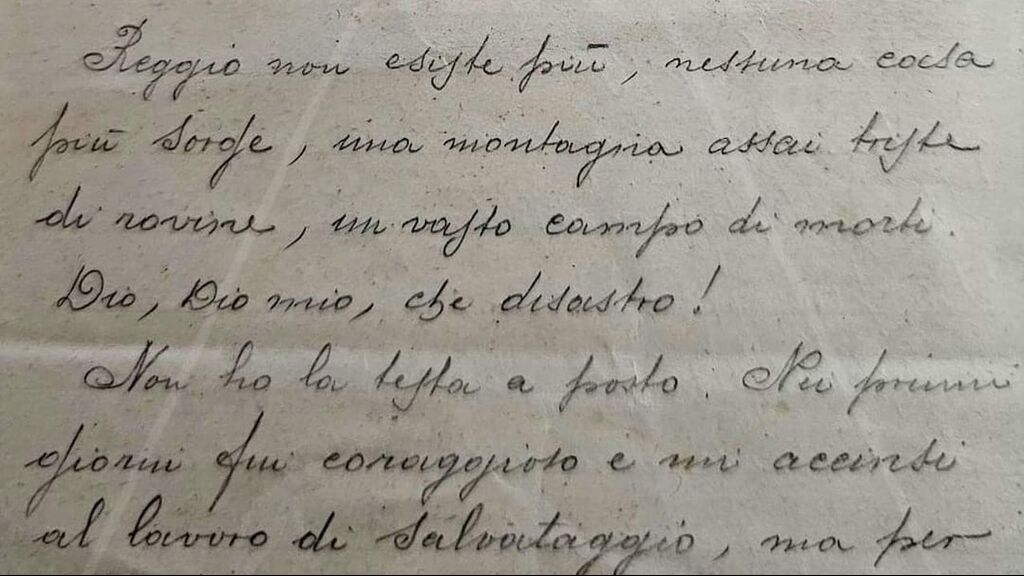 Reggio non esiste più, nessuna casa
più sorge, una montagna assai triste
di rovine, un vasto campo di morti.
Dio, Dio mio, che disastro!
Non ho la testa a posto. Nei primi
giorni fui coraggioso e mi accinsi
al lavoro di salvataggio, ma per